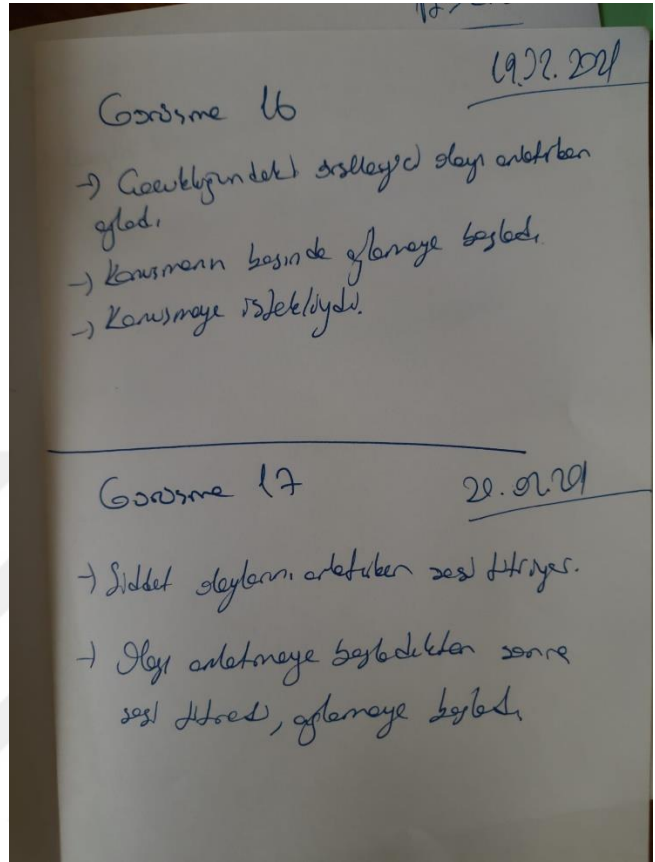 Görüşme 16
19.02.2021
→ Çocukluğundaki örseleyici olayı anlatırken
ağladı.
→ Konuşmanın başında ağlamaya başladı.
→ Konuşmaya istekliydi.
Görüşme 17
→ Şiddet olaylarını anlatırken sesi titriyor.
→ Olayı anlatmaya başladıktan sonra
sesi titredi, ağlamaya başladı.